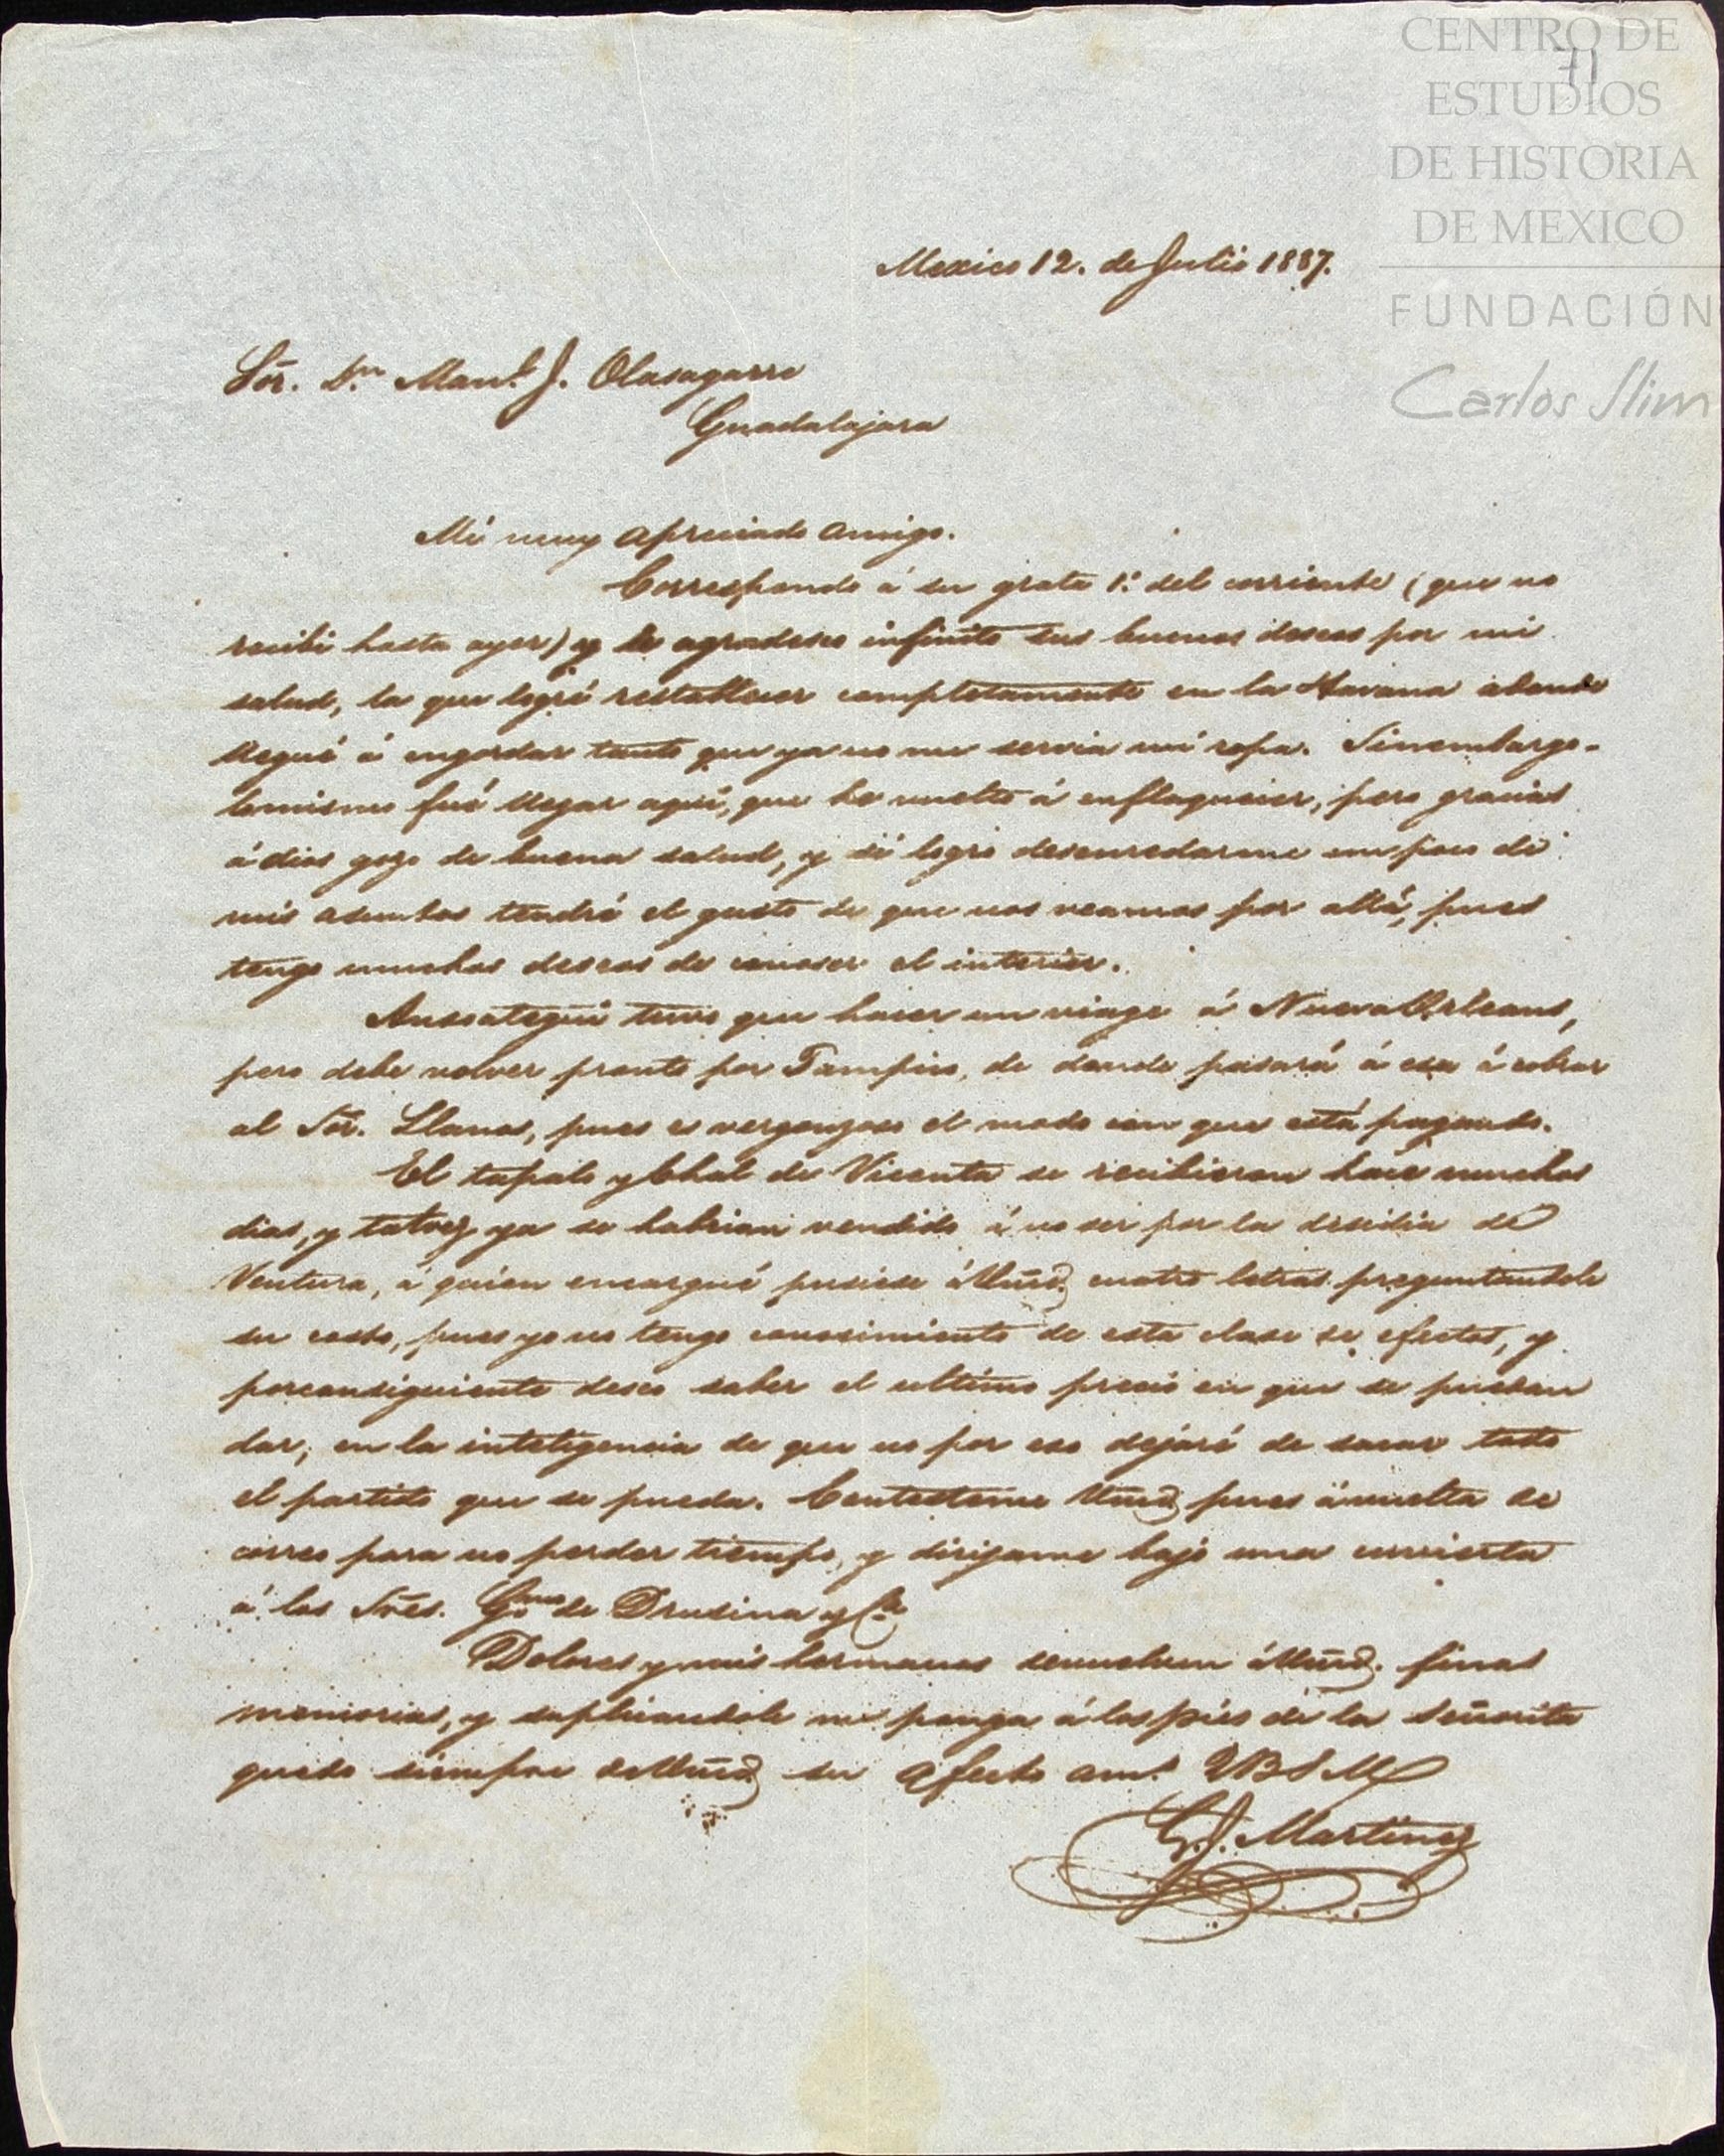 CENTRO DE
ESTUDIOS
DE HISTORIA
DE MEXICO
FUNDACIÓN
Carlos Slim
71
Mexico 12. de Julio 1837.
Sõr. Dn. Manl. J. Olasagarre
Guadalajara
Mi muy apreciado amigo.
Correspondo á su grata 1º. del corriente (que no
recibi hasta ayer) y le agradesco infinito sus buenos deseos por mi
salud, la que logré restablecer completamente en la Havana adonde
llegué á engordar tanto que ya no me servia mi ropa. Sinembargo
lomismo fué llegar aqui, que he vuelto á enflaquecer, pero gracias
á dios gozo de buena salud, y si logro desenredarme un poco de
mis asuntos tendré el gusto de que nos veamos por allá, pues
tengo muchos deseos de conoser el interior.
Ansoategui tuvo que hacer un viage á Nueva Orleans,
pero debe volver pronto por Tampico, de donde pasará á esa á cobrar
al Sõr. Llanos, pues es vergonzoso el modo con que está pagando.
El tapalo y Chal de Vicenta se recibieron hace muchos
dias, y talvez ya se habrian vendido á no ser por la desidia de
Ventura, á quien encargué pusiese á Vmd. cuatro letras preguntandole
su costo, pues yo no tengo conosimiento de esta clase de efectos, y
porconsiguiente deseo saber el ultimo precio en que se puedan
dar, en la inteligencia de que no por eso dejaré de sacar todo
el partido que se pueda. Contesteme Vmd. pues ávuelta de
correo para no perder tiempo, y dirijame bajo una cuvierta
á los Srẽs. Gmo. de Drusina y Ca.
Dolores y mis hermanas devuelven á Vmd. finas
memorias, y suplicandole me ponga á los piés de la Señorita
quedo siempre de Vmd. su afecto am.º QBSM
G. J. Martinez